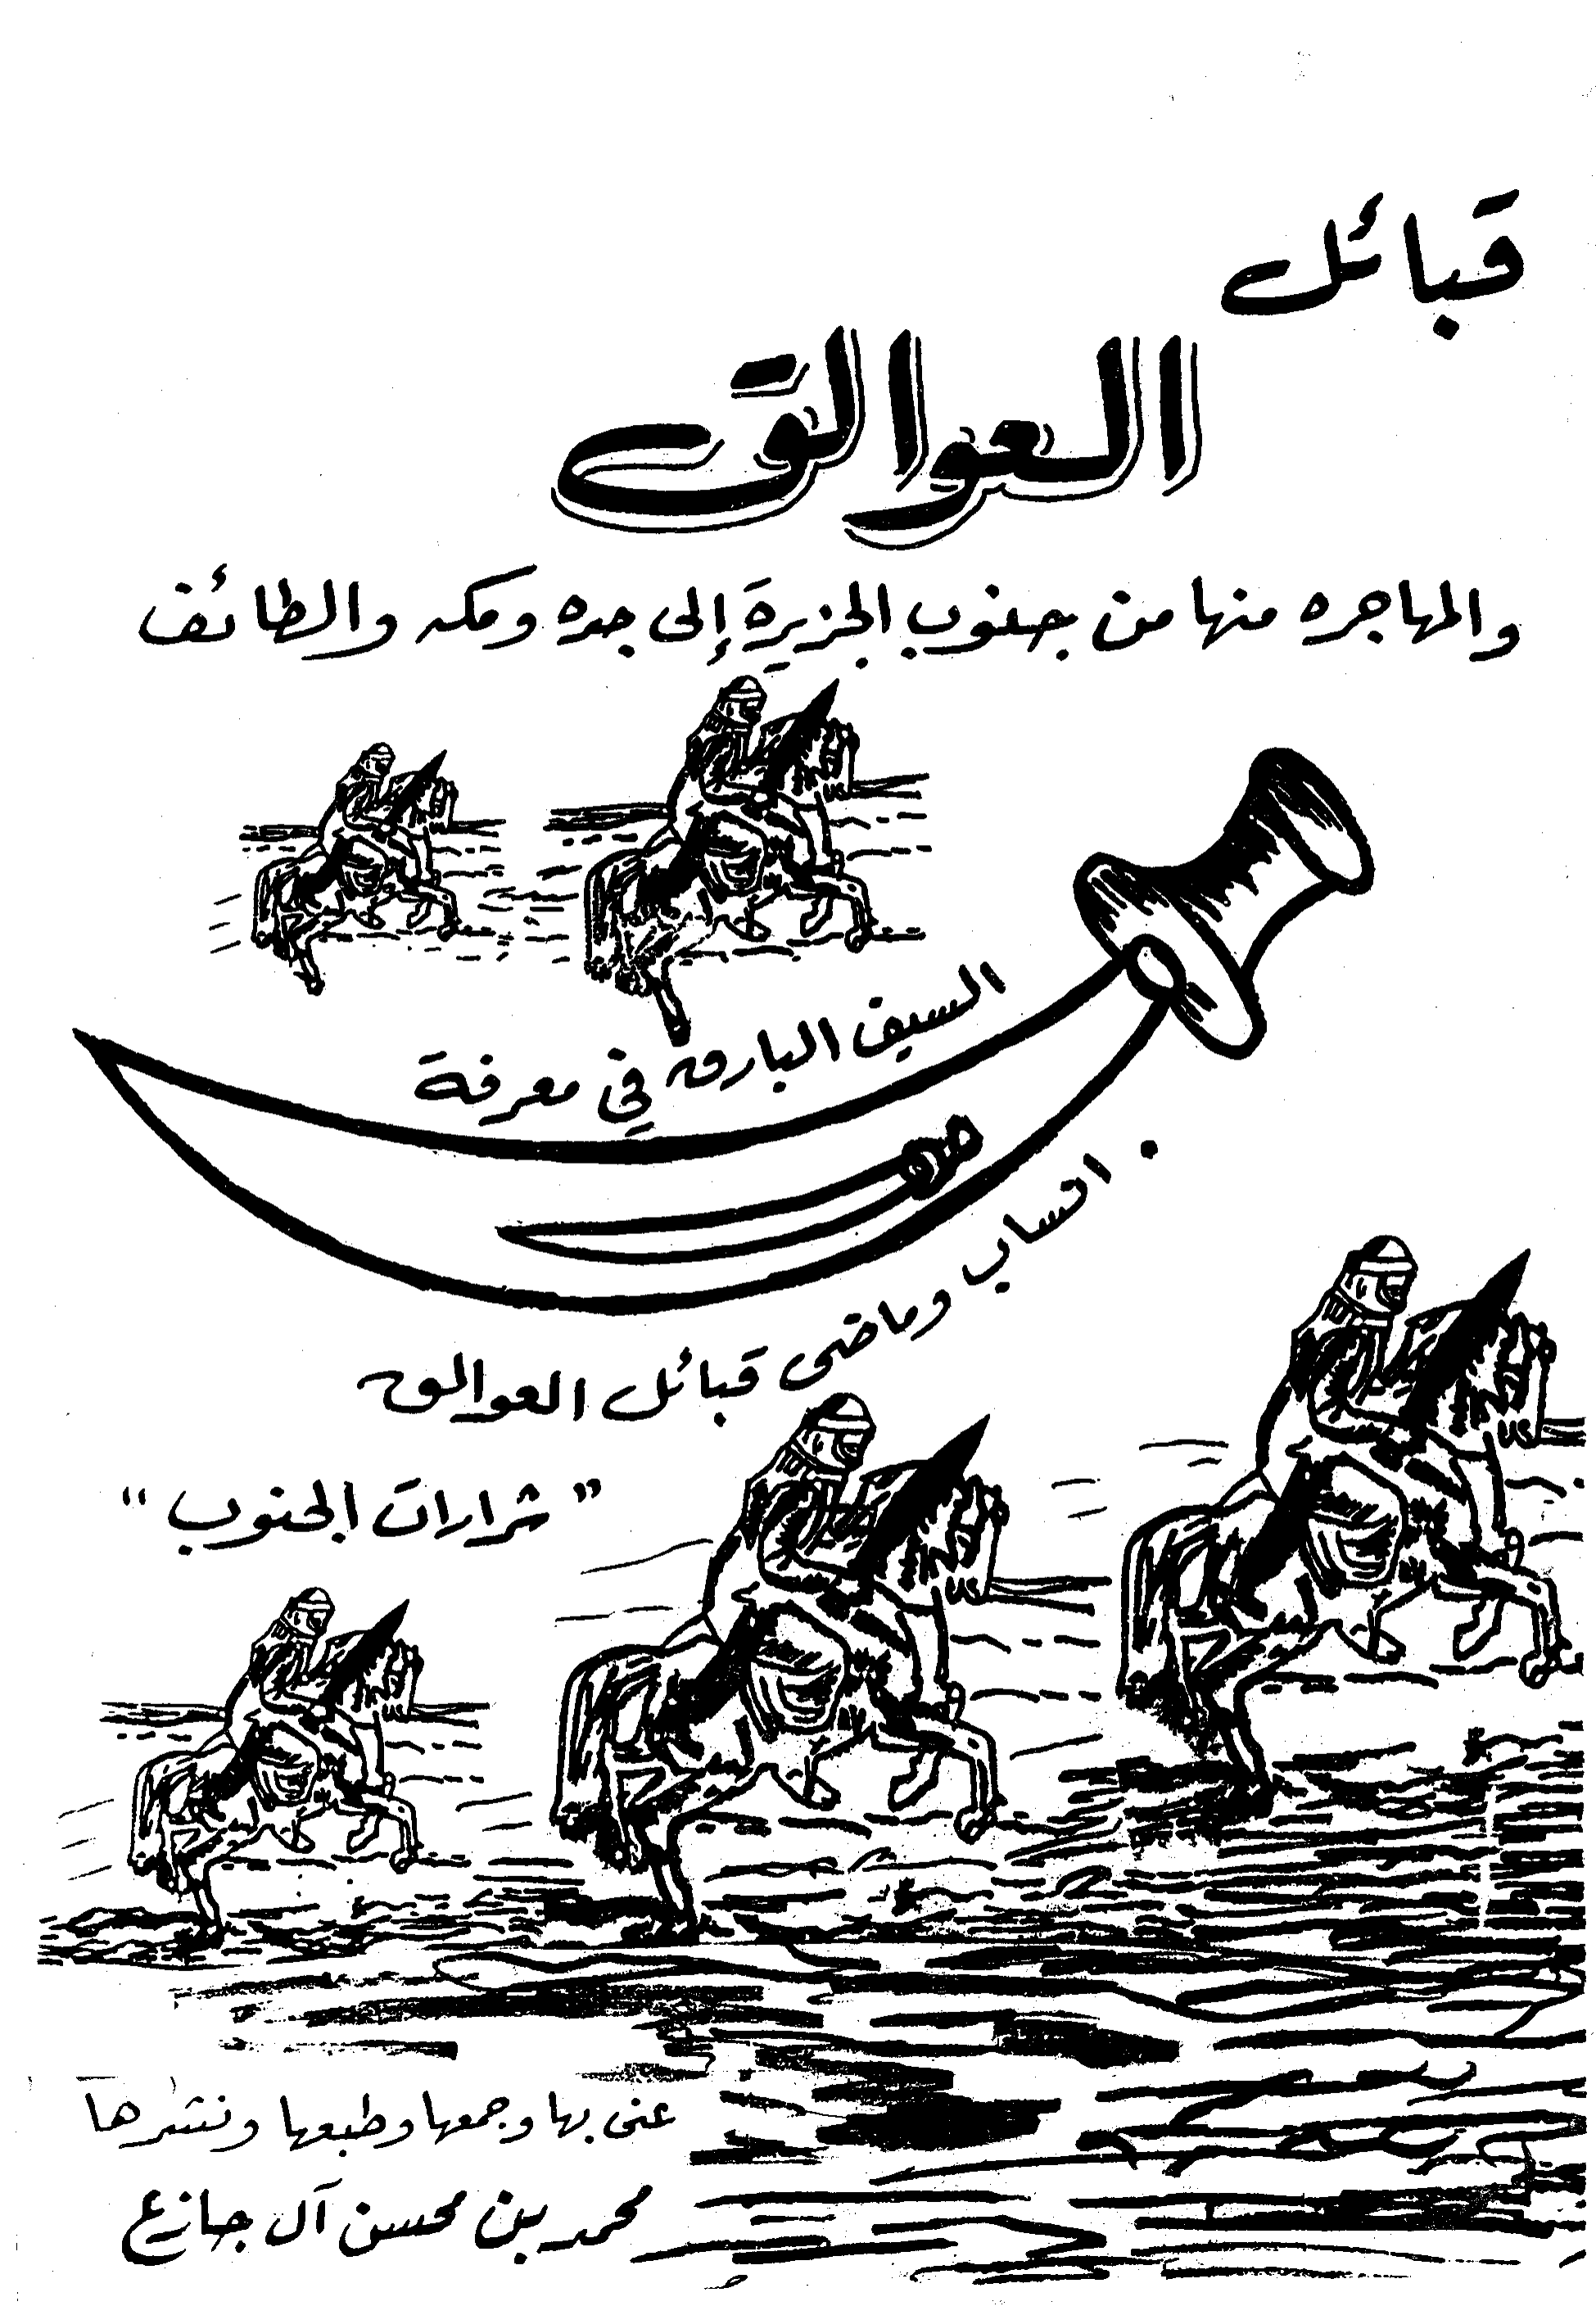 قبائل
العوالق
والمهاجره منها من جنوب الجزيرة إلى جده ومكه والطائف
السيف البارق في معرفة
انساب وماضى قبائل العوالق
"شرارات الجنوب"
عنى بها وجمعها وطبعها ونشرها
محمد بن محسن آل جازع